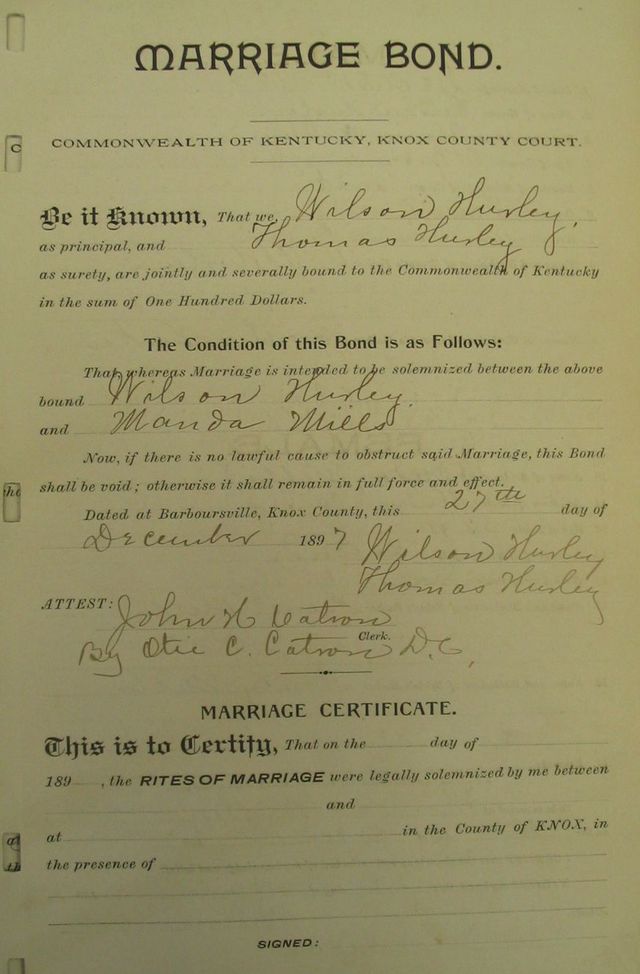 MARRIAGE BOND.
COMMONWEALTH OF KENTUCKY, KNOX COUNTY COURT.
Be it Known, That we, Wilson Hurley,
as principal, and Thomas Hurley
as surety, are jointly and severally bound to the Commonwealth of Kentucky
in the sum of One Hundred Dollars.
The Condition of this Bond is as Follows:
That whereas Marriage is intended to be solemnized between the above
bound Wilson Hurley.
and Manda Mills
Now, if there is no lawful cause to obstruct said Marriage, this Bond
shall be void; otherwise it shall remain in full force and effect.
Dated at Barboursville, Knox County, this 27th day of
December 1897 Wilson Hurley
Thomas Hurley
ATTEST: John H Catron
Clerk.
By Otie C. Catron D.C,
MARRIAGE CERTIFICATE.
This is to Certify, That on the day of
189 , the RITES OF MARRIAGE were legally solemnized by me between
and
at in the County of KNOX, in
the presence of
SIGNED: